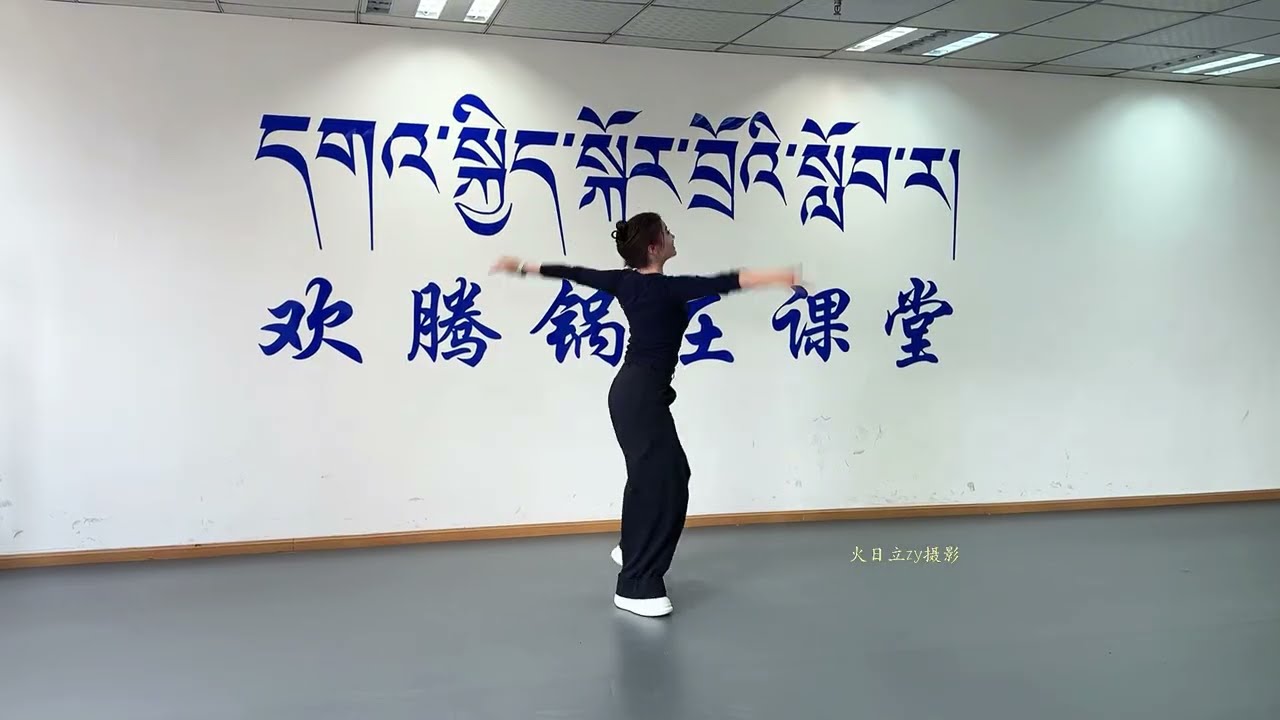 དགའ་སྐྱིད་སྐོར་བྲོའི་སློབ་ར།
欢腾锅庄课堂
火日立zy摄影